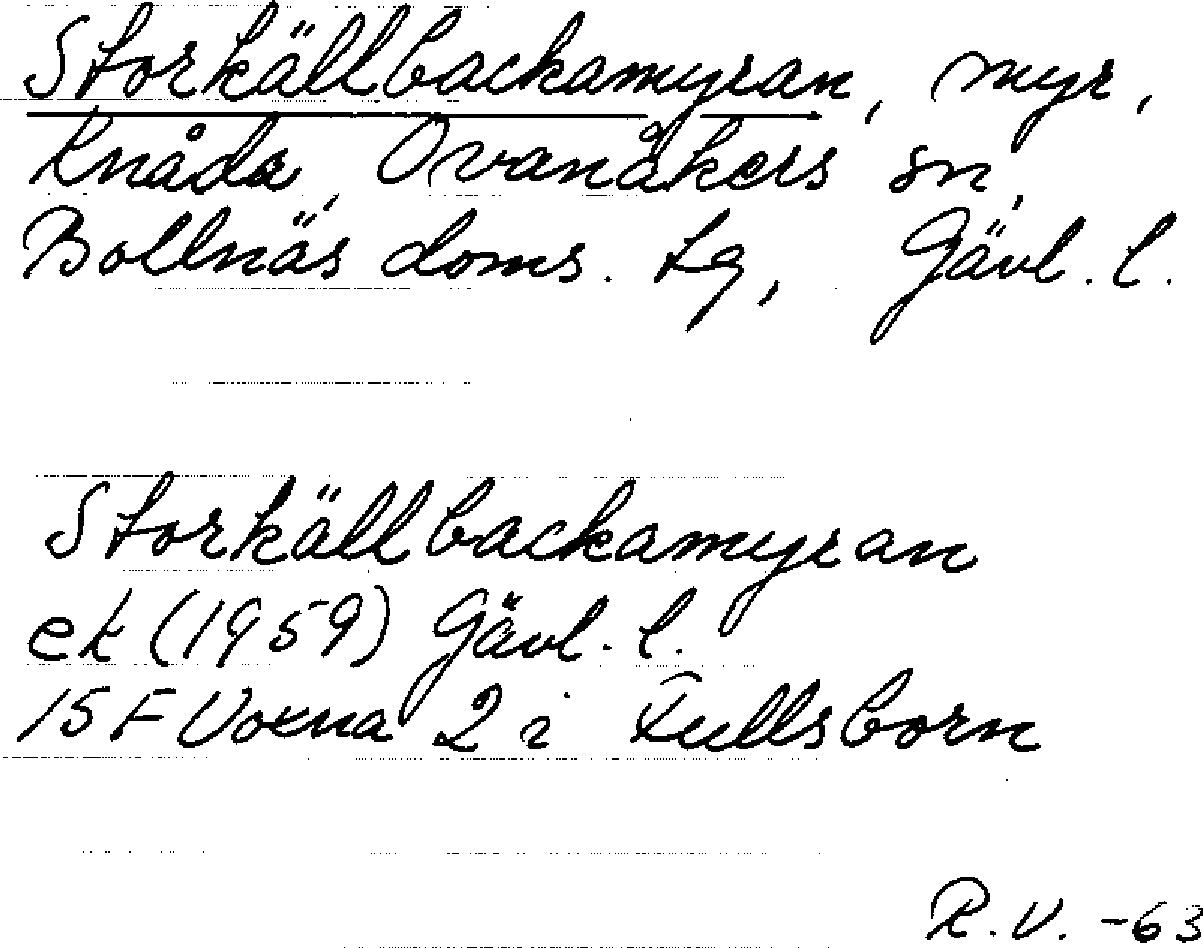 Storkällbackamyran, myr,
Knåda, Ovanåkers sn,
Bollnäs doms. tg, Gävl. l.
Storkällbackamyran
ek (1959) Gävl. l.
15 F Voxna 2 i Fullsborn
R.V. -63